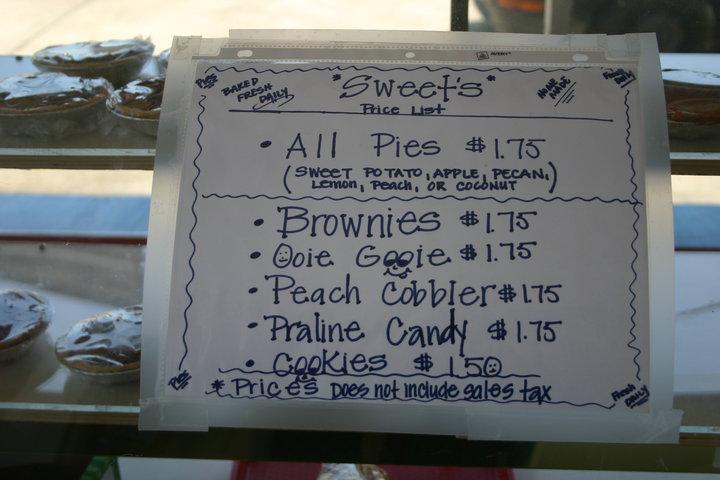 AVERY
Pies
BAKED
FRESH
DAILY
"Sweet's"
HOME
MADE
Price List
• All Pies $1.75
(SWEET POTATO, APPLE, PECAN,
Lemon, Peach, OR COCONUT)
• Brownies $1.75
• Ooie Gooie $1.75
• Peach Cobbler $1.75
• Praline Candy $1.75
• Cookies $1.50
* Price's Does not include sales tax
Pies
Fresh
DAILY